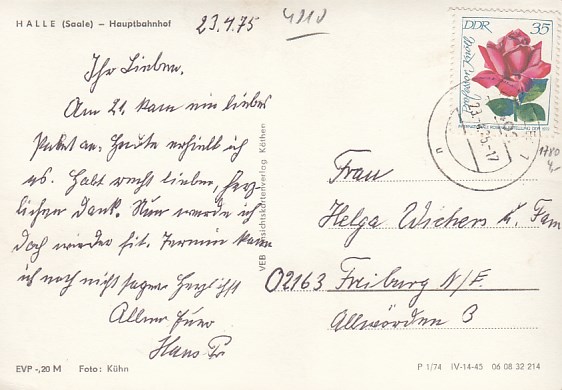 HALLE (Saale) – Hauptbahnhof
23.4.75
4210
Ihr Lieben.
Am 21. kam ein liebes
Paket an. Heute erhielt ich
es. Habt recht lieben, herz-
lichen Dank. Nun werde ich
doch wieder fit. Termin kann
ich noch nicht sagen. Herzlichst
Allen Euer
Hans
EVP -,20 M Foto: Kühn
VEB Ansichtskartenverlag Köthen
DDR 35
23.
-17
n
1780
Frau
Helga Wichers u. Fam
02163 Freiburg N/E.
Allwörden 3
P 1/74 IV-14-45 06 08 32 214